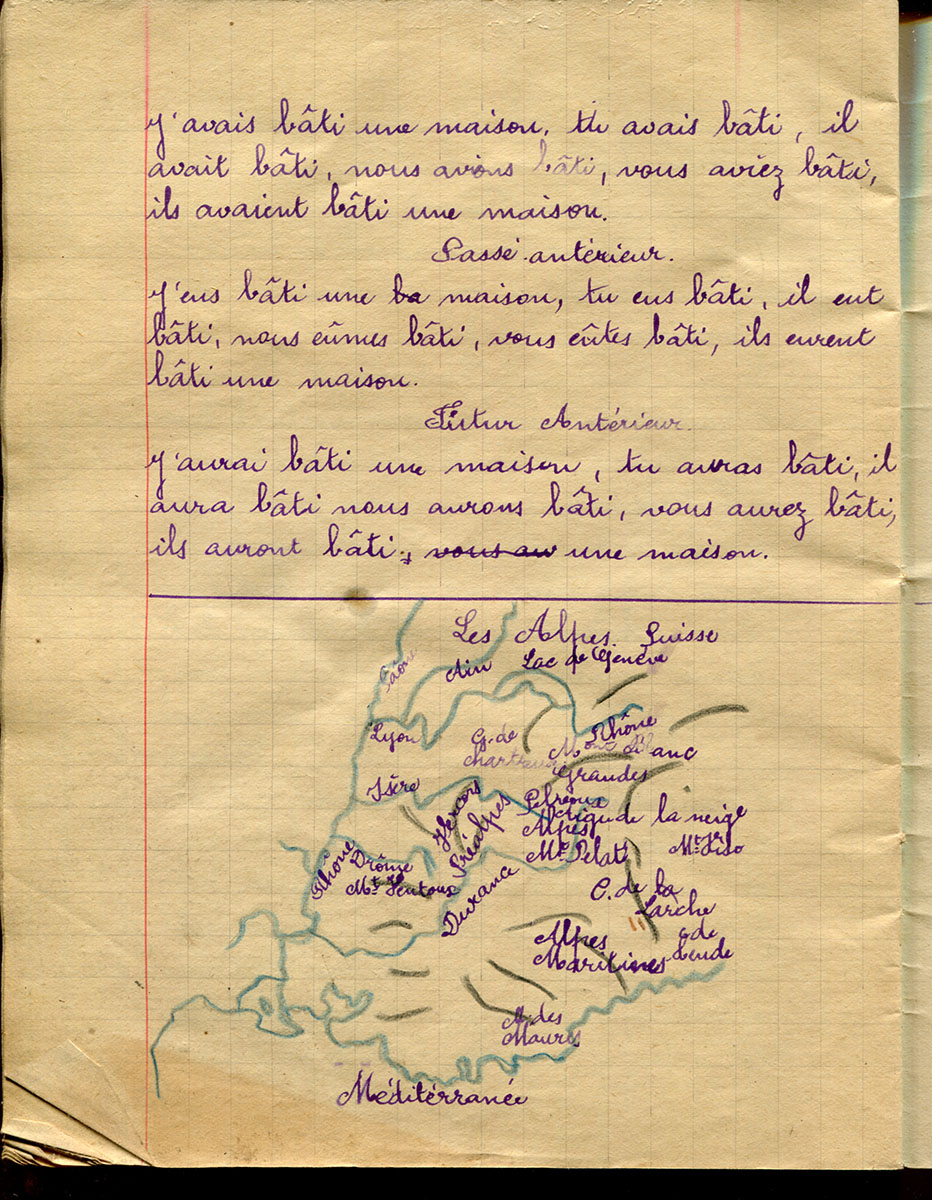 J'avais bâti une maison, tu avais bâti, il
avait bâti, nous avions bâti, vous aviez bâti,
ils avaient bâti une maison.
Passé antérieur.
J'eus bâti une ba maison, tu eus bâti, il eut
bâti, nous eûmes bâti, vous eûtes bâti, ils eurent
bâti une maison.
Futur Antérieur.
J'aurai bâti une maison, tu auras bâti, il
aura bâti nous aurons bâti, vous aurez bâti,
ils auront bâti, vous au une maison.
Les Alpes. Suisse
Saône
Ain
Lac de Genève
Lyon
G. de
chartreuse
Rhône
Mont Blanc
Grandes
Isère
Vercors
Préalpes
Pelvoux
Alpes
de la neige
Mt Viso
Mt Pelat
Rhône
Drôme
Mt Ventoux
Durance
C. de la
Larche
Alpes
Maritimes
c de
tende
M. des
Maures
Méditérranée